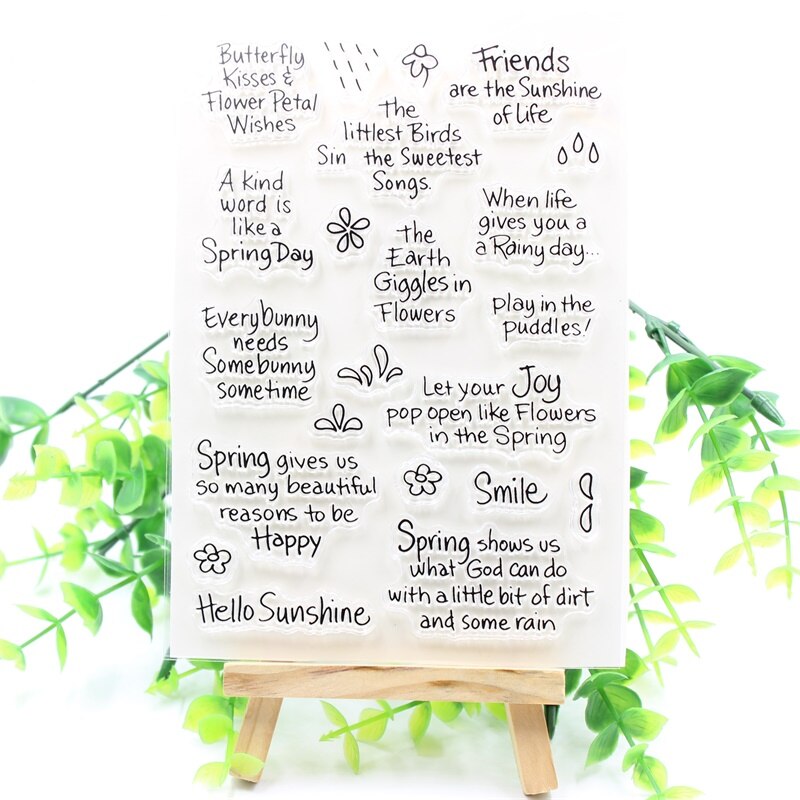 Butterfly
Kisses &
Flower Petal
Wishes
Friends
are the Sunshine
of Life
The
littlest Birds
Sin the Sweetest
Songs.
A kind
word is
like a
Spring Day
When life
gives you a
a Rainy day...
the
Earth
Giggles in
Flowers
play in the
puddles!
Everybunny
needs
Somebunny
sometime
Let your Joy
pop open like Flowers
in the Spring
Spring gives us
so many beautiful
reasons to be
Happy
Smile
Spring shows us
what God can do
with a little bit of dirt
and some rain
Hello Sunshine